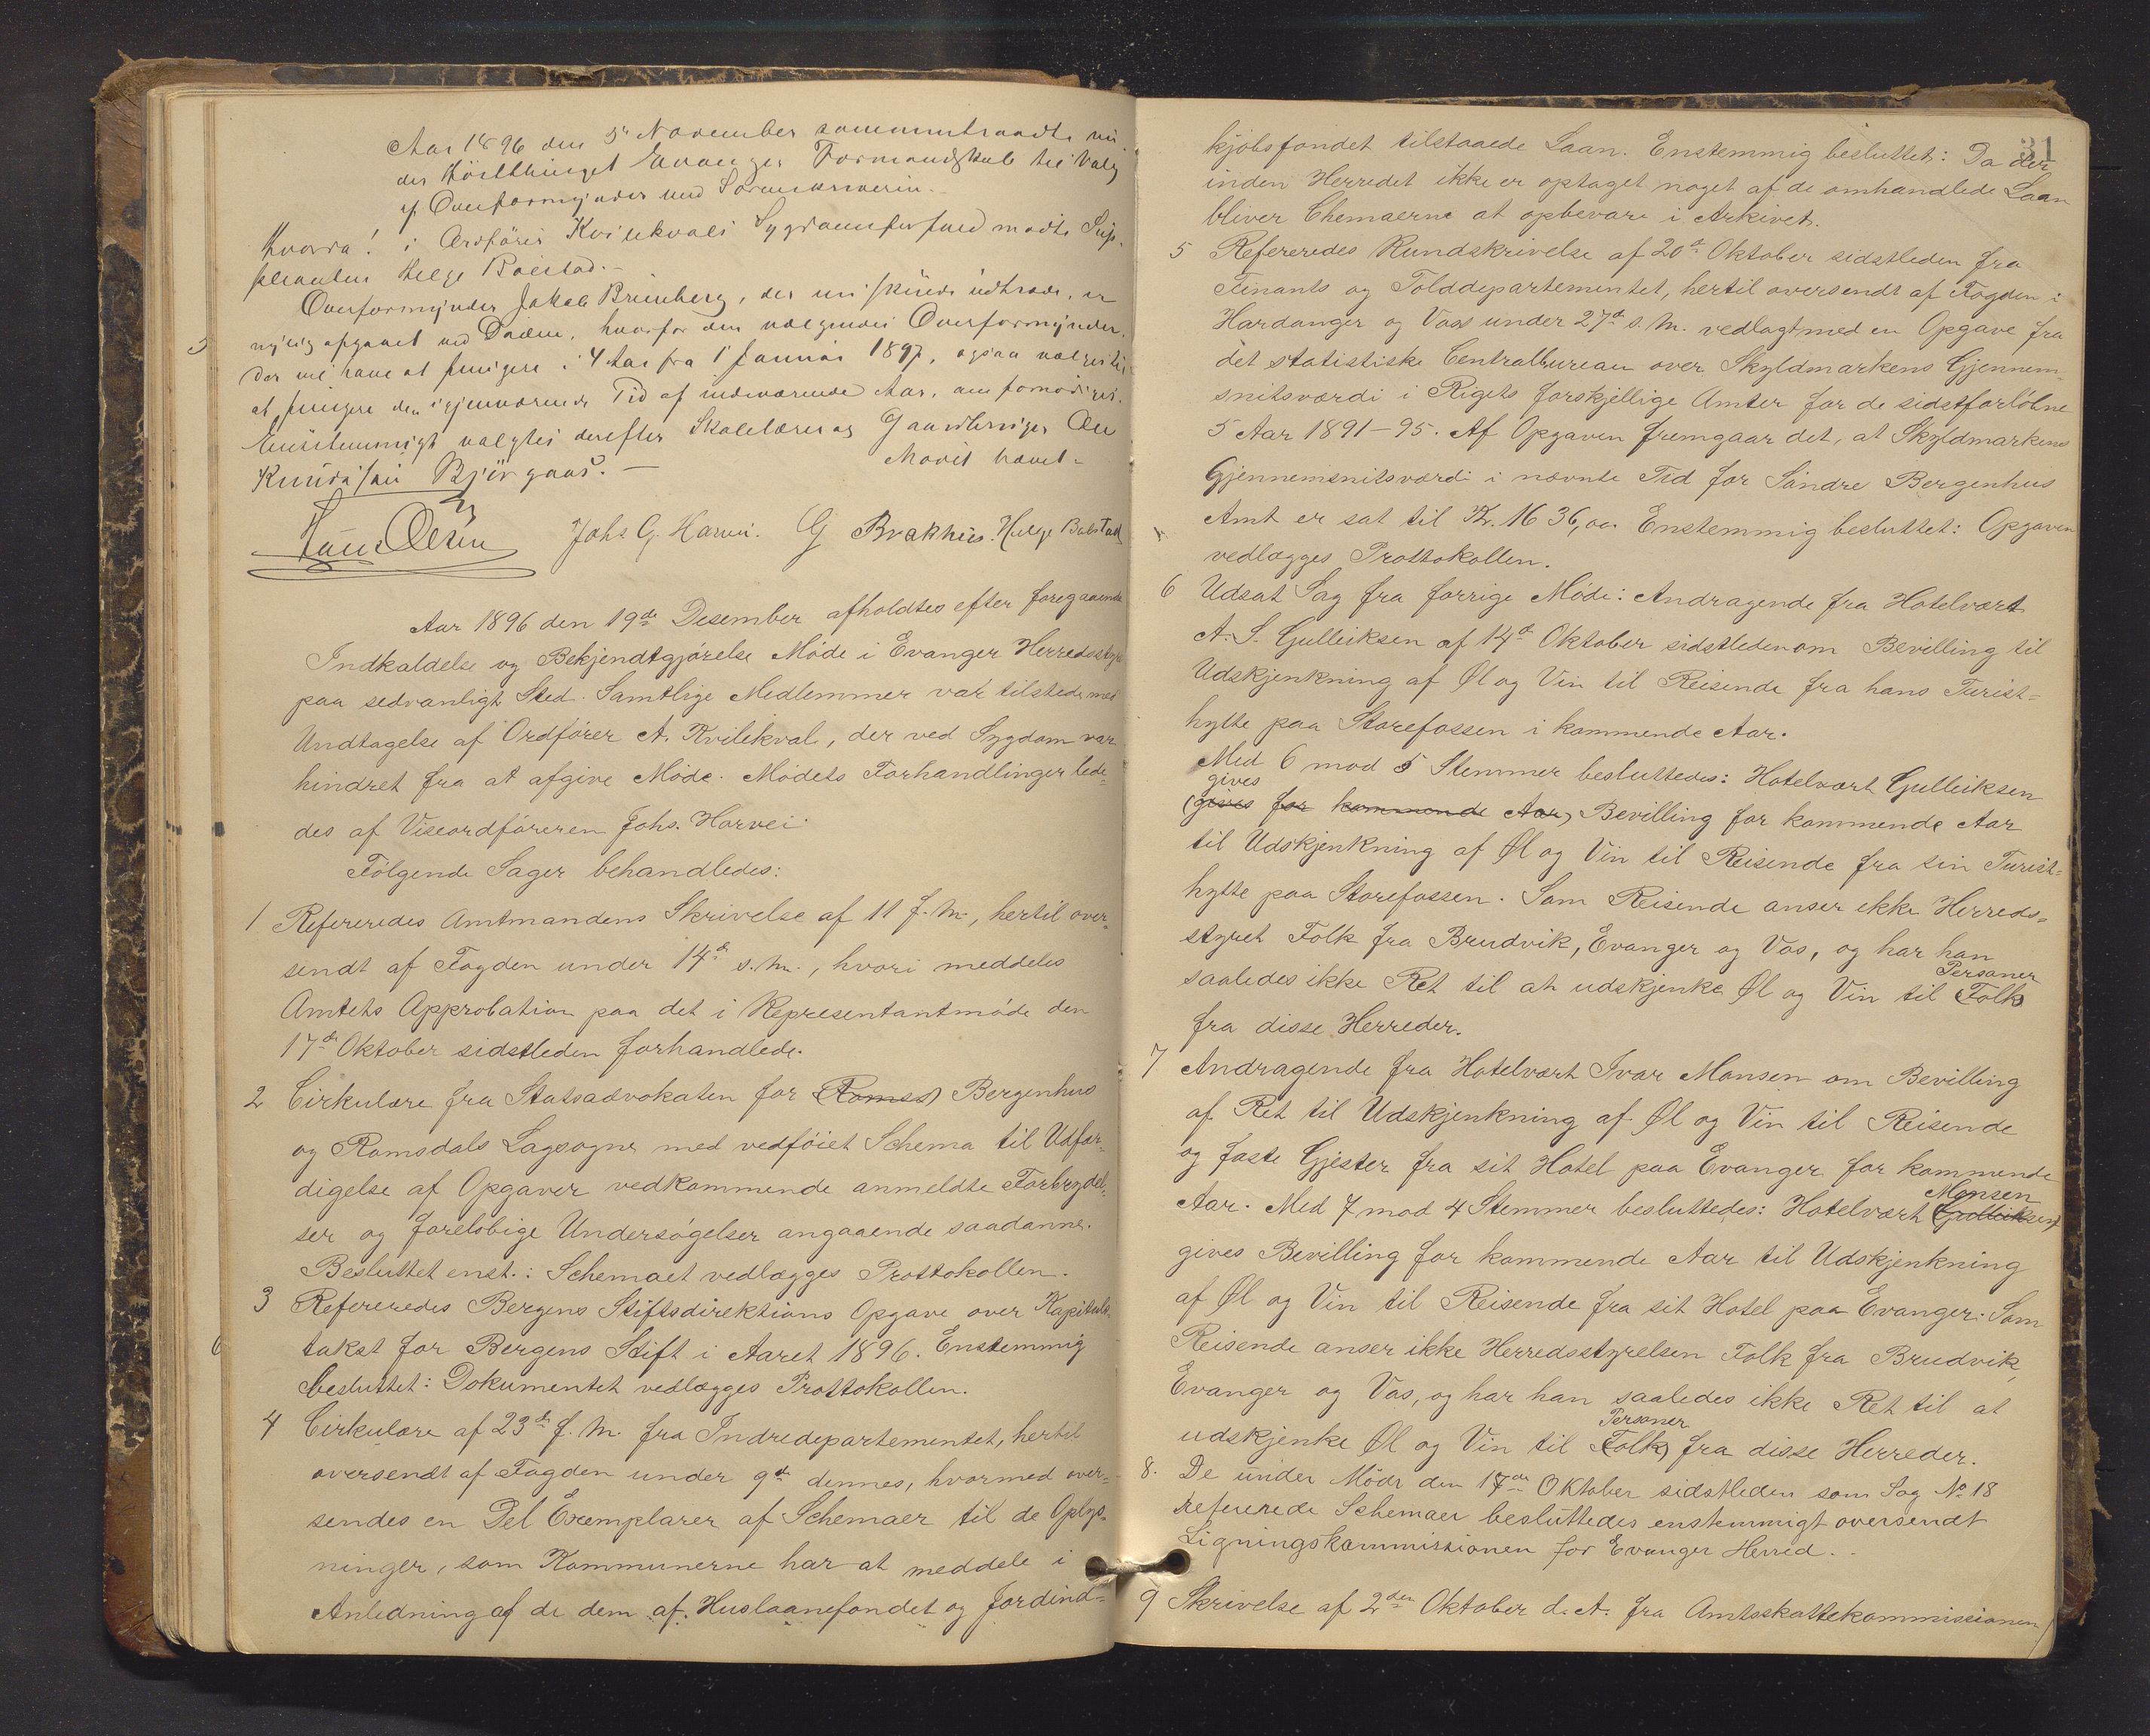 Aar 1896 den 5te November sammentraadte ved
det Hösttinget Evanger Formandskab til Valg
af Overformynder med Sorenskriveren.
Hvorda! i Ordförer Kvilekvals Sygdomsforfald mödte Sup-
pleanten Helge Bolstad.
Overformynder Jakob Brunborg, der uni skulde udtræde, er
nylig afgaaet ved Döden, hvorfor den vælgendes Overformynder,
der vil have at fungere i 4 Aar fra 1 Januar 1897, ogsaa vælges til
at fungere den igjenværende Tid af indeværende Aar, om fornødiges.
Enstemmigt valgtes derefter Skolelærer og Gaardbruger Ole
Knudsen Björgaas. — Mødet hævet.
Hans Olsen Johs G. Harvei. G Brakhus. Helge Bolstad
Aar 1896 den 19de Desember afholdtes efter foregaaende
Indkaldelse og Bekjendtgjörelse Möde i Evanger Herredsstyre
paa sedvanligt Sted. Samtlige Medlemmer var tilstede med
Undtagelse af Ordförer A. Kvilekval, der ved Sygdom var
hindret fra at afgive Möde. Mödets Forhandlinger lede-
des af Viseordföreren Johs. Horvei.
Fölgende Sager behandledes:
1 Refereredes Amtmandens Skrivelse af 11 f. M., hertil over-
sendt af Fogden under 14de s. M., hvori meddeles
Amtets Approbation paa det i Representantmöde den
17de Oktober sidstleden forhandlede.
2 Cirkulære fra Statsadvokaten for (Romss) Bergenhus
og Romsdals Lagsogne med vedföiet Schema til Udfær-
digelse af Opgaver vedkommende anmeldte Forbrydel-
ser og forelöbige Undersögelser angaaende saadanne.
Besluttet enst.: Schemaet vedlægges Prottokollen.
3 Refereredes Bergens Stiftsdirektions Opgave over Kapitels-
takst for Bergens Stift i Aaret 1896. Enstemmig
besluttet: Dokumentet vedlægges Prottokollen.
4 Cirkulære af 23de f. M. fra Indredepartementet, hertil
oversendt af Fogden under 9de dennes, hvormed over-
sendes en Del Exemplarer af Schemaer til de Oplys-
ninger, som Kommunerne har at meddele i
Anledning af de dem af Huslaanefondet og Jordind-
31
kjöbsfondet tilstaaede Laan. Enstemmig besluttet: Da der
inden Herredet ikke er optaget noget af de omhandlede Laan
bliver Chemaerne at opbevare i Arkivet.
5 Refereredes Rundskrivelse af 20de Oktober sidstleden fra
Finants og Tolddepartementet, hertil oversendt af Fogden i
Hardanger og Voss under 27de s. M. vedlagt med en Opgave fra
det statistiske Centralbureau over Skyldmarkens Gjennem-
snitsværdi i Rigets forskjellige Amter for de sidstforlöbne
5 Aar 1891–95. Af Opgaven fremgaar det, at Skyldmarkens
Gjennemsnitsværdi i nævnte Tid for Söndre Bergenhus
Amt er sat til Kr. 1636,00. Enstemmig besluttet: Opgaven
vedlægges Prottokollen.
6 Udsat Sag fra forrige Möde: Andragende fra Hotelvært
A. S. Gulleiksen af 14de Oktober sidstleden om Bevilling til
Udskjenkning af Øl og Vin til Reisende fra hans Turist-
hytte paa Storefossen i kommende Aar.
Med 6 mod 5 Stemmer besluttedes: Hotelvært Gulleiksen
gives
(gives for kommende Aar) Bevilling for kommende Aar
til Udskjenkning af Øl og Vin til Reisende fra sin Turist-
hytte paa Storefossen. Som Reisende anser ikke Herreds-
styret Folk fra Brudvik, Evanger og Vos, og har han
Personer
saaledes ikke Ret til at udskjenke Øl og Vin til (Folk)
fra disse Herreder.
7 Andragende fra Hotelvært Ivar Monsen om Bevilling
af Ret til Udskjenkning af Øl og Vin til Reisende
og faste Gjester fra sit Hotel paa Evanger for kommende
Monsen
Aar. Med 7 mod 4 Stemmer besluttedes: Hotelvært (Gulleiksen)
gives Bevilling for kommende Aar til Udskjenkning
af Øl og Vin til Reisende fra sit Hotel paa Evanger. Som
Reisende anser ikke Herredsstyrelsen Folk fra Brudvik,
Evanger og Vos, og har han saaledes ikke Ret til at
Personer
udskjenke Øl og Vin til (Folk) fra disse Herreder.
8. De under Möde den 17de Oktober sidstleden som Sag No 18
refererede Schemaer besluttedes enstemmigt oversendt
Ligningskommissionen for Evanger Herred.
9 Skrivelse af 2den Oktober d. A. fra Amtsskattekommissionen